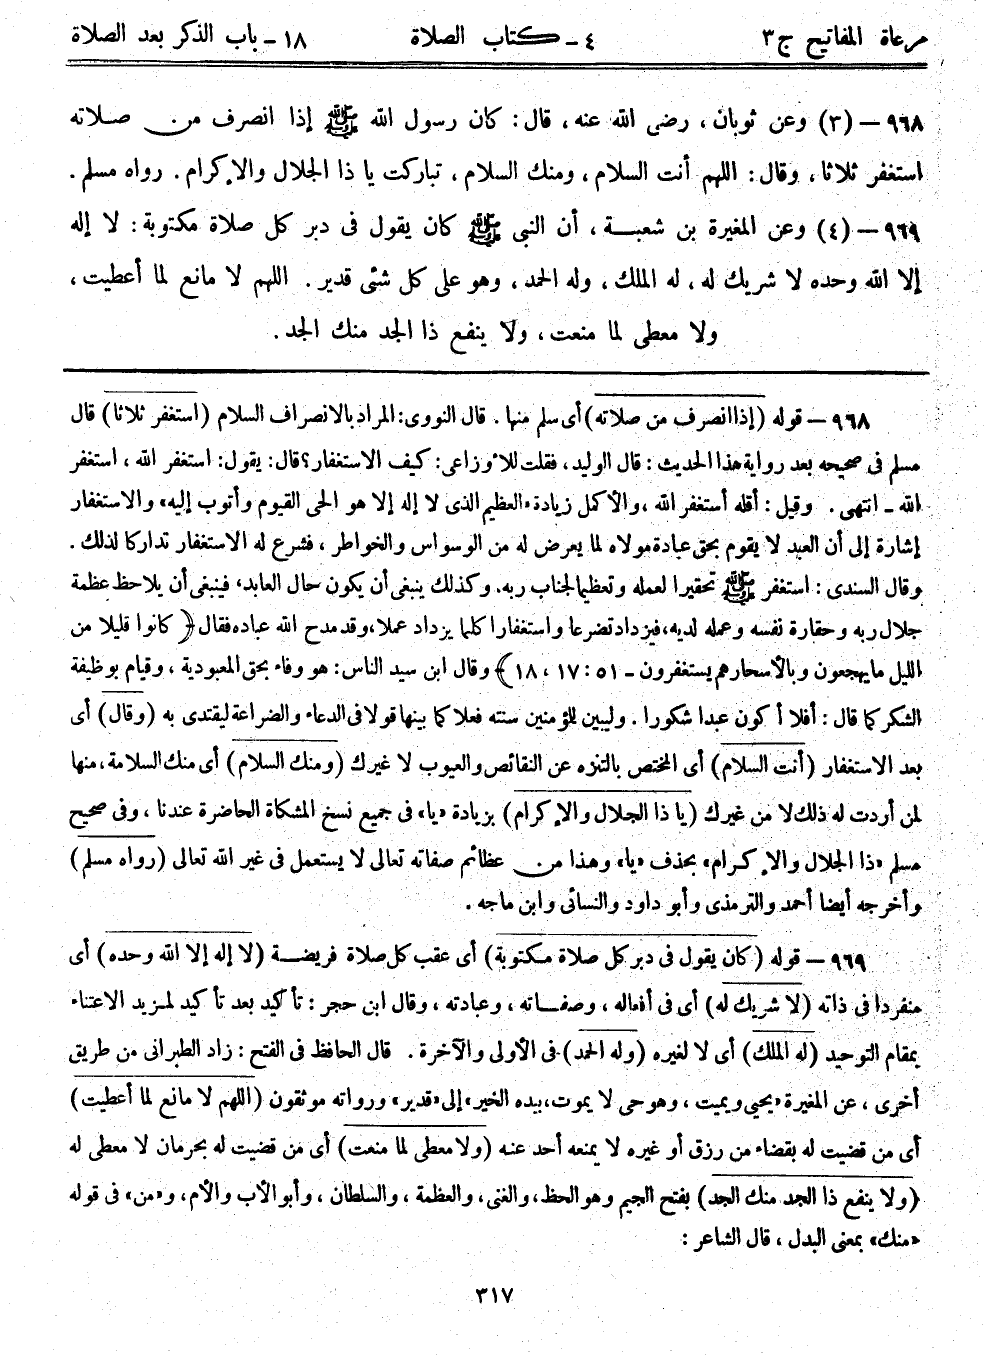 مرعاة المفاتيح ج٣ ٤ ـ كتاب الصلاة ١٨ ـ باب الذكر بعد الصلاة
٩٦٨ – (٣) وعن ثوبان، رضى الله عنه، قال: كان رسول الله ﷺ إذا انصرف من صلاته
استغفر ثلاثا، وقال: اللهم أنت السلام، ومنك السلام، تباركت يا ذا الجلال والإكرام. رواه مسلم.
٩٦٩ – (٤) وعن المغيرة بن شعبة، أن النبى ﷺ كان يقول فى دبر كل صلاة مكتوبة: لا إله
إلا الله وحده لا شريك له، له الملك، وله الحمد، وهو على كل شئى قدير. اللهم لا مانع لما أعطيت،
ولا معطى لما منعت، ولا ينفع ذا الجد منك الجد.
٩٦٨ – قوله (إذا انصرف من صلاته) أى سلم منها. قال النووى: المراد بالانصراف السلام (استغفر ثلاثا) قال
مسلم فى صحيحه بعد رواية هذا الحديث: قال الوليد، فقلت للأوزاعى: كيف الاستغفار؟ قال: يقول: استغفر الله، استغفر
الله ـ انتهى. وقيل: أقله أستغفر الله، والأكمل زيادة «العظيم الذى لا إله إلا هو الحى القيوم وأتوب إليه» والاستغفار
إشارة إلى أن العبد لا يقوم بحق عبادة مولاه لما يعرض له من الوسواس والخواطر، فشرع له الاستغفار تداركا لذلك.
وقال السندى: استغفر ﷺ تحقيرا لعمله وتعظيما لجناب ربه. وكذلك ينبغى أن يكون حال العابد، فينبغى أن يلاحظ عظمة
جلال ربه وحقارة نفسه وعمله لديه، فيزداد تضرعا واستغفارا كلما يزداد عملا، وقد مدح الله عباده فقال ﴿كانوا قليلا من
الليل ما يهجعون وبالأسحار هم يستغفرون ـ ٥١: ١٧، ١٨﴾ وقال ابن سيد الناس: هو وفاء بحق العبودية، وقيام بوظيفة
الشكر كما قال: أفلا أكون عبدا شكورا. وليبين للمؤمنين سنته فعلا كما بينها قولا فى الدعاء والضراعة ليقتدى به (وقال) أى
بعد الاستغفار (أنت السلام) أى المختص بالتنزه عن النقائص والعيوب لا غيرك (ومنك السلام) أى منك السلامة، منها
لمن أردت له ذلك لا من غيرك (يا ذا الجلال والإكرام) بزيادة «يا» فى جميع نسخ المشكاة الحاضرة عندنا، وفى صحيح
مسلم «ذا الجلال والإكرام» بحذف «يا» وهذا من عظائم صفاته تعالى لا يستعمل فى غير الله تعالى (رواه مسلم)
وأخرجه أيضا أحمد والترمذى وأبو داود والنسائى وابن ماجه.
٩٦٩ – قوله (كان يقول فى دبر كل صلاة مكتوبة) أى عقب كل صلاة فريضة (لا إله إلا الله وحده) أى
منفردا فى ذاته (لا شريك له) أى فى أفعاله، وصفاته، وعبادته، وقال ابن حجر: تأكيد بعد تأكيد لمزيد الاعتناء
بمقام التوحيد (له الملك) أى لا لغيره (وله الحمد) فى الأولى والآخرة. قال الحافظ فى الفتح: زاد الطبرانى من طريق
أخرى، عن المغيرة «يحيى ويميت، وهو حى لا يموت، بيده الخير» إلى «قدير» ورواته موثقون (اللهم لا مانع لما أعطيت)
أى من قضيت له بقضاء من رزق أو غيره لا يمنعه أحد عنه (ولا معطى لما منعت) أى من قضيت له بحرمان لا معطى له
(ولا ينفع ذا الجد منك الجد) بفتح الجيم وهو الحظ، والغنى، والعظمة، والسلطان، وأبو الأب والأم، و«من» فى قوله
«منك» بمعنى البدل، قال الشاعر:
٣١٧